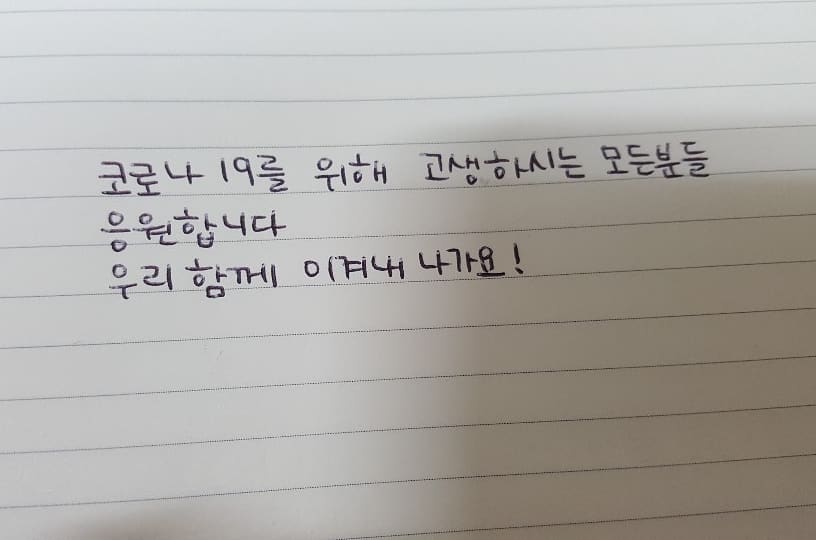 코로나 19를 위해 고생하시는 모든분들
응원합니다
우리 함께 이겨내 나가요!